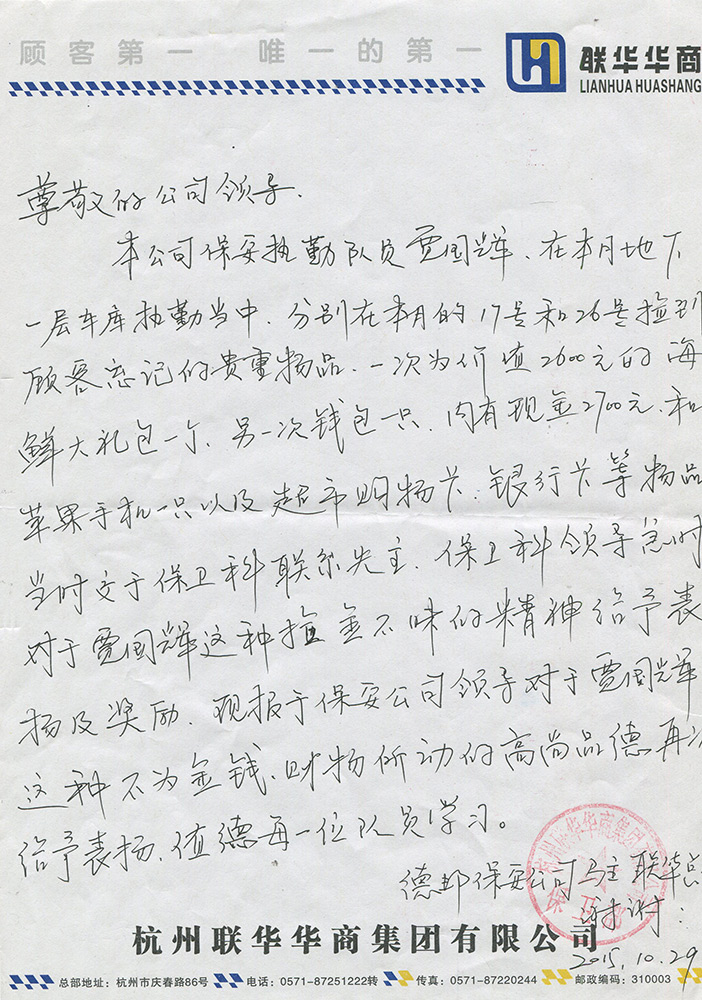 顾客第一 唯一的第一
联华华商
LIANHUA HUASHANG
尊敬的公司领导.
本公司保安执勤队员贾国辉、在本月地下
一层车库执勤当中、分别在本月的17号和26号捡到
顾客忘记的贵重物品、一次为价值2600元的海
鲜大礼包一个、另一次钱包一只、内有现金2700元、和
苹果手机一只以及超市购物卡、银行卡等物品
当时交于保卫科联系失主、保卫科领导急时
对于贾国辉这种捡金不昧的精神给予表
扬及奖励、现报于保安公司领导对于贾国辉
这种不为金钱、财物所动的高尚品德再次
给予表扬、值德每一位队员学习。
德邦保安公司马主 联华总
谢谢:
2015.10.29
杭州联华华商集团有限公司
总部地址:杭州市庆春路86号 电话:0571-87251222转 传真:0571-87220244 邮政编码:310003